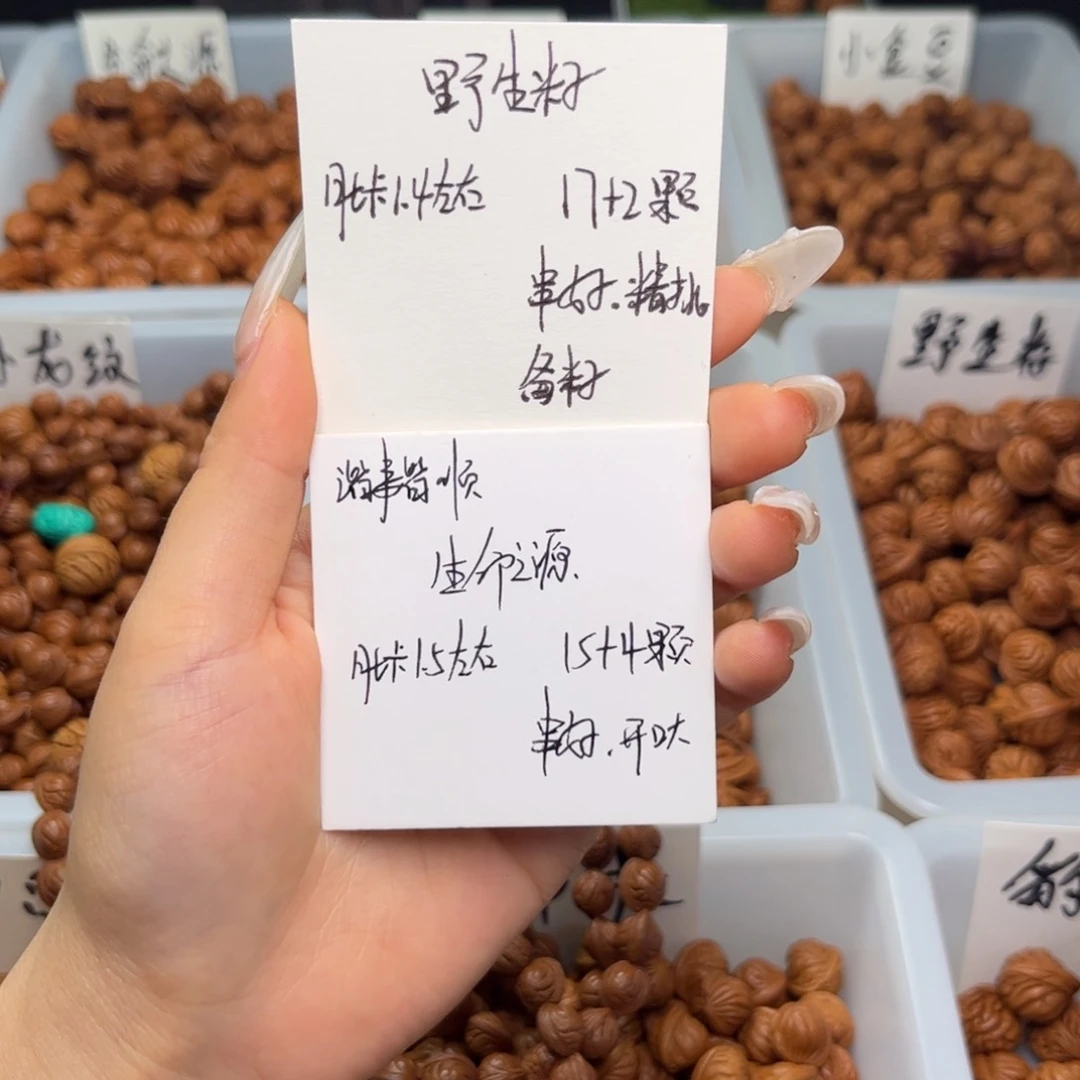 野生籽
肚卡1.4左右 17+2颗
串好.精挑
备籽
诸事皆顺
生命之源
肚卡1.5左右 15+4颗
串好.开口大
小金豆
龙纹
野生